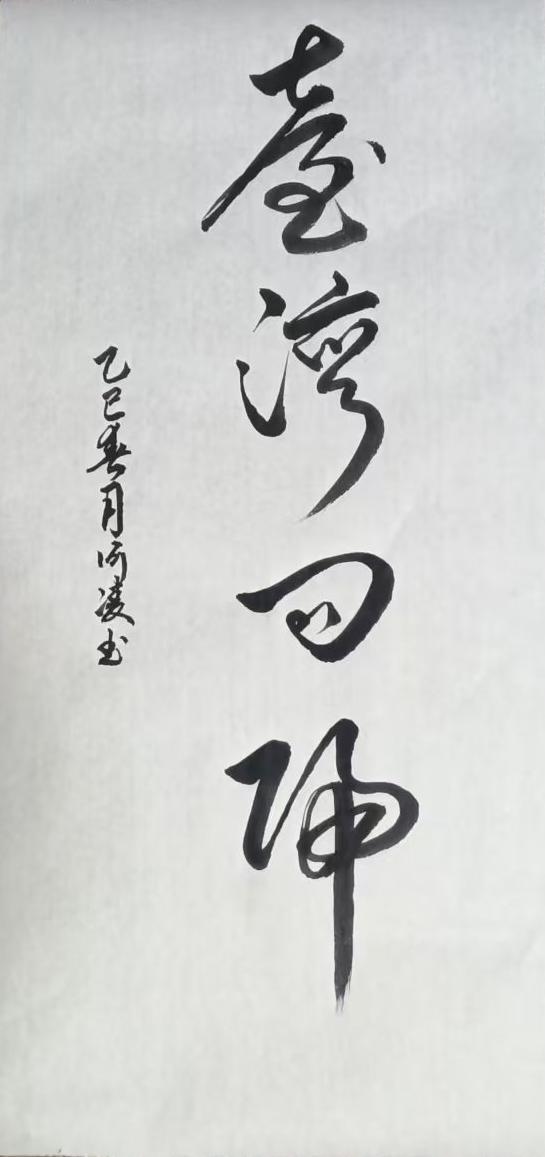 臺灣回歸
乙巳春月
凌书